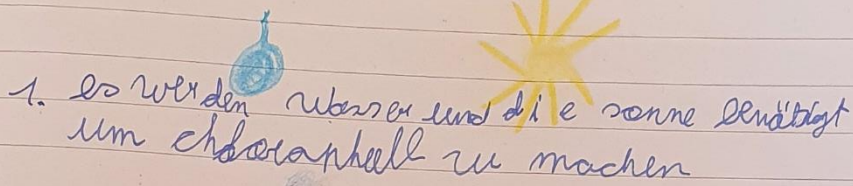 1. es werden wasser und die sonne benätigt
um chloraphull zu machen